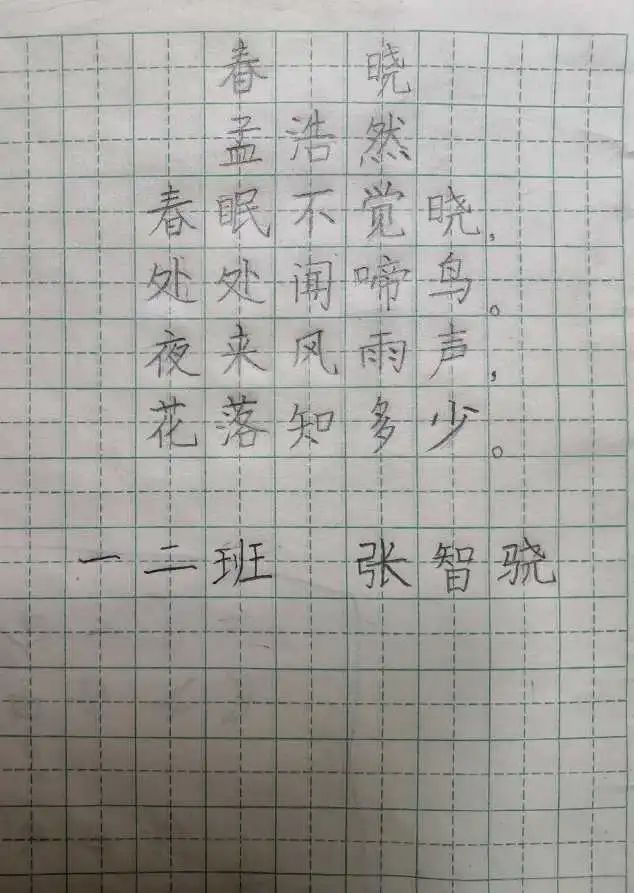 春 晓
孟浩然
春眠不觉晓，
处处闻啼鸟。
夜来风雨声，
花落知多少。
一二班 张智骁